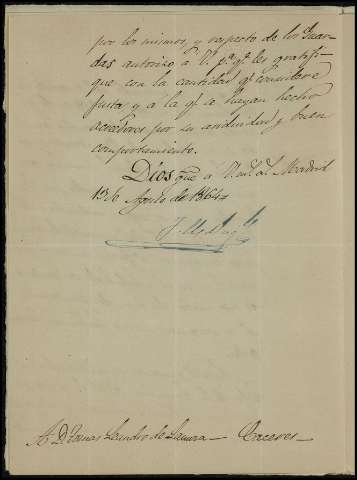 por los mismos, y respecto de los Guar-
das autorizo a V. pa. qe. les gratifi-
que con la cantidad qe. considere
justa y a la qe. se hayan hecho
acreedores por su asiduidad y buen
comportamiento.
Dios gue. a V. ms. as. Madrid
13 de Agosto de 1864
A D. Tomas Leandro de Lamora — Caceres —